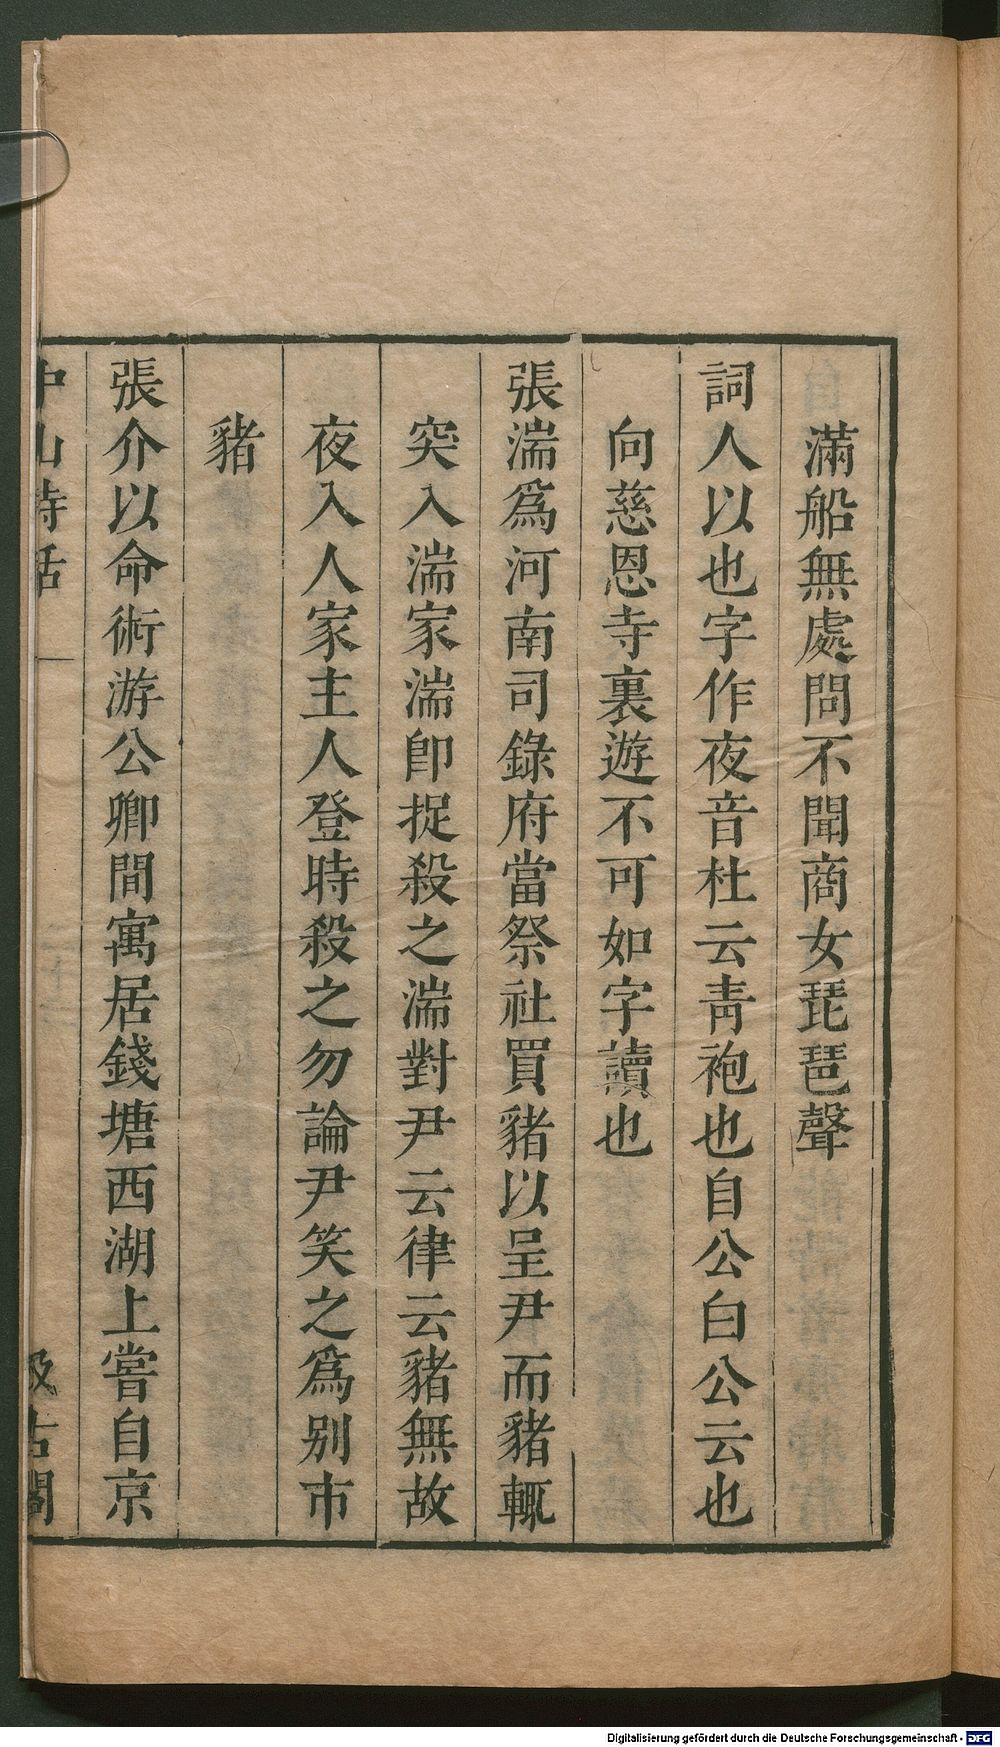 滿船無處問不聞商女琵琶聲
詞人以也字作夜音杜云靑袍也自公白公云也
向慈恩寺裏遊不可如字讀也
張湍爲河南司錄府當祭社買豬以呈尹而豬輒
突入湍家湍卽捉殺之湍對尹云律云豬無故
夜入人家主人登時殺之勿論尹笑之爲别市
豬
張介以命術游公卿間寓居錢塘西湖上嘗自京
中山詩話
汲古閣
Digitalisierung gefördert durch die Deutsche Forschungsgemeinschaft - DFG